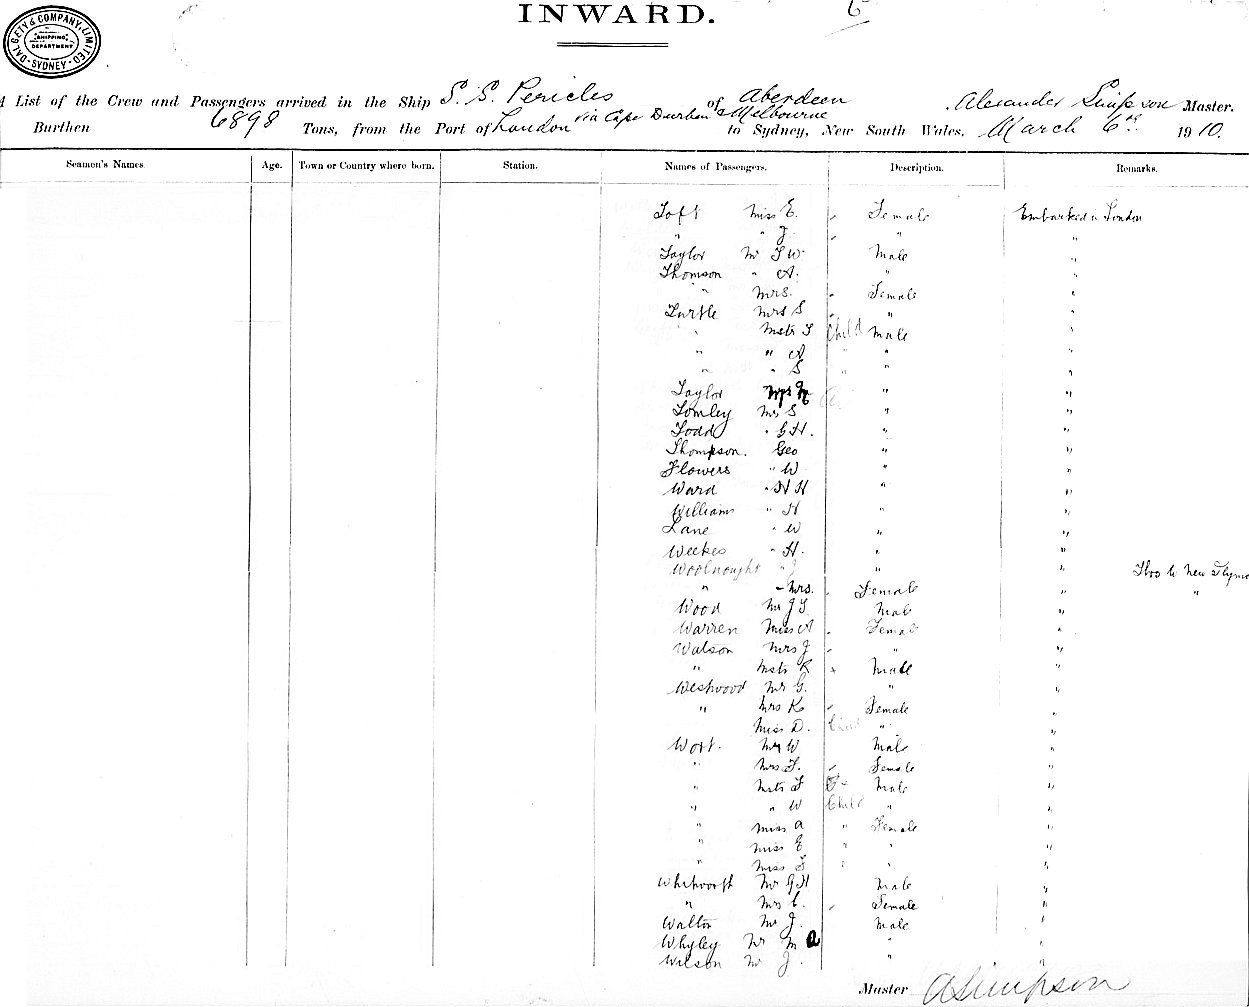 INWARD. 6
DALGETY & COMPANY, LIMITED
SHIPPING DEPARTMENT
SYDNEY
A List of the Crew and Passengers arrived in the Ship S. S. Pericles of Aberdeen Alexander Simpson Master.
Burthen 6898 Tons, from the Port of London via Cape Durban & Melbourne to Sydney, New South Wales, March 6th 1910.
Seamen's Names. Age. Town or Country where born. Station. Names of Passengers. Description. Remarks.
Toft Miss E. Female Embarked in London
" " J. " "
Taylor Mr T W Male "
Thomson " A. " "
" Mrs. Female "
Turtle Mrs S " "
" Mstr T Child Male "
" " A " " "
" " S " " "
Taylor " "
Tomley Mr S " "
Todd " G H. " "
Thompson. Geo " "
Flowers " W " "
Ward " H H " "
Williams " H " "
Lane " W " "
Weekes " H. " "
Woolnought " J " " Thro to New Plym
" " Mrs. Female " "
Wood Mr J T Male "
Warren Miss A Female "
Watson Mrs J " "
" Mstr R Male "
Westwood Mr G. " "
" Mrs K Female "
" Miss D. Child " "
Wort. Mr W Male "
" Mrs F. Female "
" Mstr F Male "
" " W Child " "
" Miss A " Female "
" Miss E " " "
" Miss F " " "
Whitworth Mr G H Male "
" Mrs C. Female "
Walton Mr J. Male "
Whyley Mr M A " "
Wilson Mr J. " "
Master A Simpson